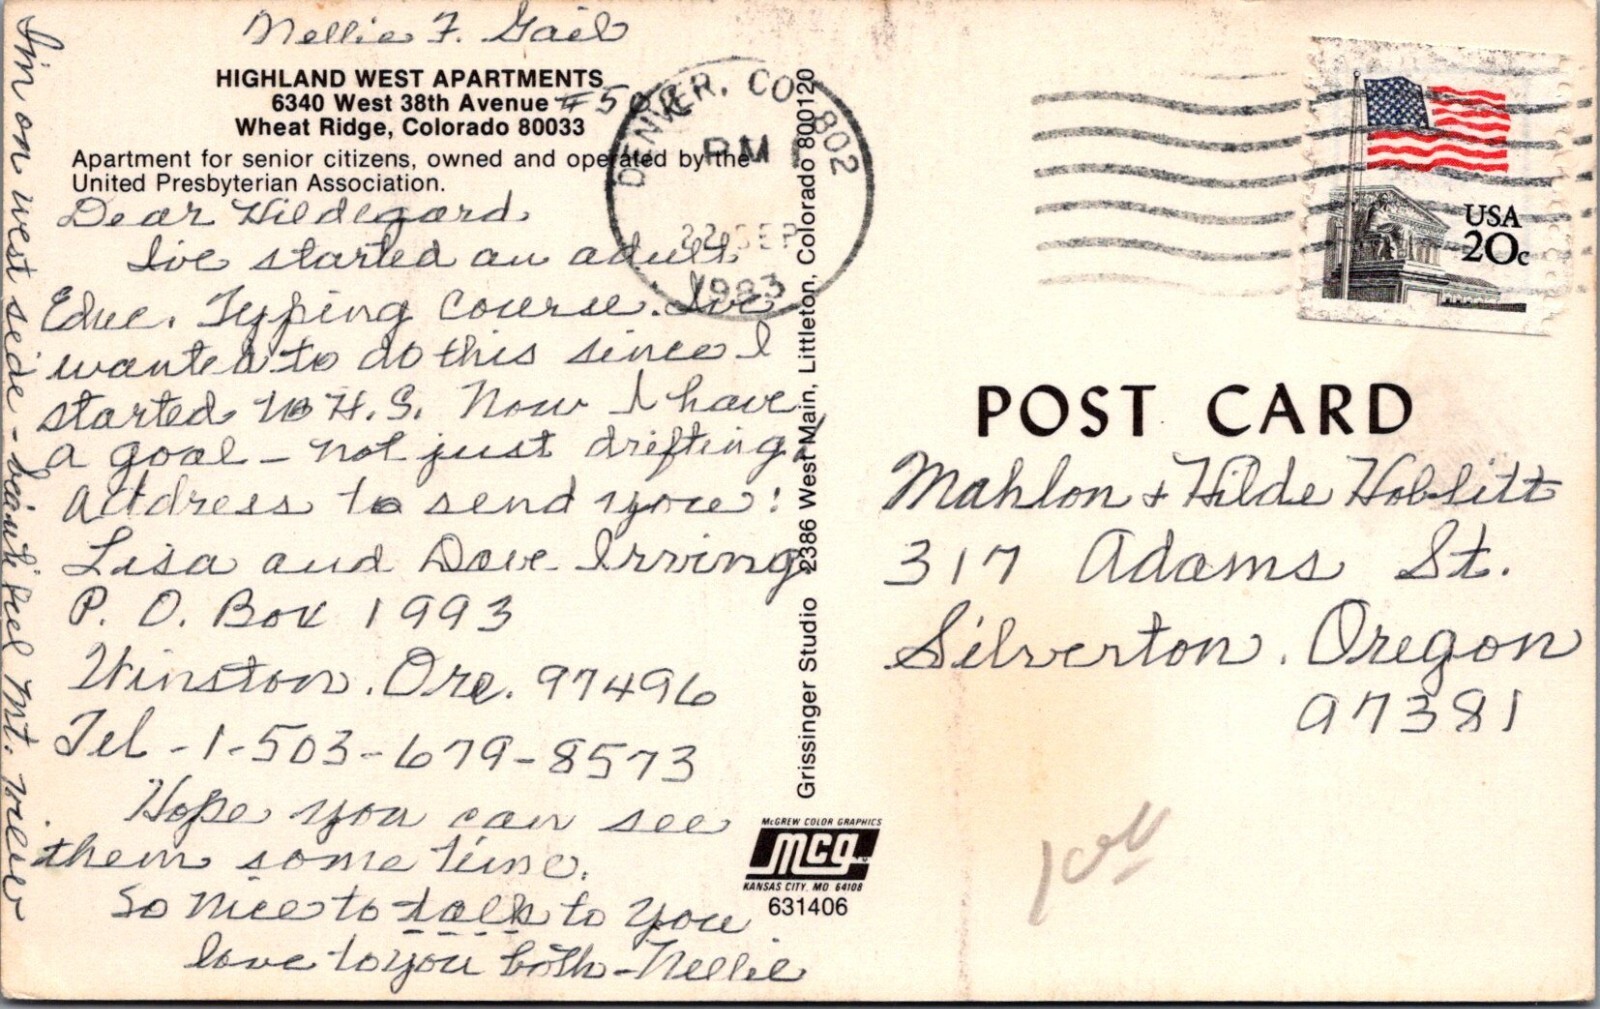 Nellie F. Gail
HIGHLAND WEST APARTMENTS
6340 West 38th Avenue
Wheat Ridge, Colorado 80033
Apartment for senior citizens, owned and operated by the
United Presbyterian Association.
Dear Hildegard,
I've started an adult
Educ. Typing course. I've
wanted to do this since I
started H.S. Now I have
a goal – not just drifting.
Address to send you:
Lisa and Dave Irving
P. O. Box 1993
Winston, Ore. 97496
Tel - 1-503-679-8573
Hope you can see
them some time.
So nice to talk to you
love to you both – Nellie
I'm on west side - beautiful Mt. view
DENVER, CO 802
PM
22 SEP
1983
Grissinger Studio 2386 West Main, Littleton, Colorado 800120
McGREW COLOR GRAPHICS
mcg
KANSAS CITY, MO 64108
631406
USA
20c
POST CARD
Mahlon & Hilde Hoblitt
317 Adams St.
Silverton, Oregon
97381